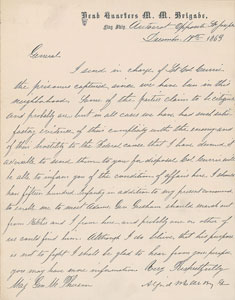 Head Quarters M. M. Brigade.
Flag Ship Autocrat Opposite
December 18th 1863
General
I send in charge of Lt Col Currie
the prisoners captured, since we have been in this
neighborhood. Some of the parties claim to be citizens
and probably are, but in all cases we have had satis-
factory evidence of their complicity with the enemy and
of their hostility to the Federal cause that I have deemed it
advisable to send them to you for disposal. Col Currie will
be able to inform you of the condition of affairs here. I should
have fifteen hundred Infantry in addition to my present command
to enable me to meet
from and I from him, and probably one or other of
us could find him. Although I do believe that his purpose
is not to fight. I shall be glad to hear from you
you may have more information. Very Respectfully
Maj Gen Alfred W. Ellet Brig Gen